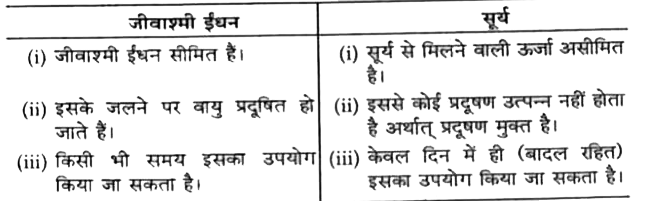 जीवाश्मी ईंधन
सूर्य
(i) जीवाश्मी ईंधन सीमित हैं।
(i) सूर्य से मिलने वाली ऊर्जा असीमित
है।
(ii) इसके जलने पर वायु प्रदूषित हो
जाते हैं।
(ii) इससे कोई प्रदूषण उत्पन्न नहीं होता
है अर्थात् प्रदूषण मुक्त है।
(iii) किसी भी समय इसका उपयोग
किया जा सकता है।
(iii) केवल दिन में ही (बादल रहित)
इसका उपयोग किया जा सकता है।